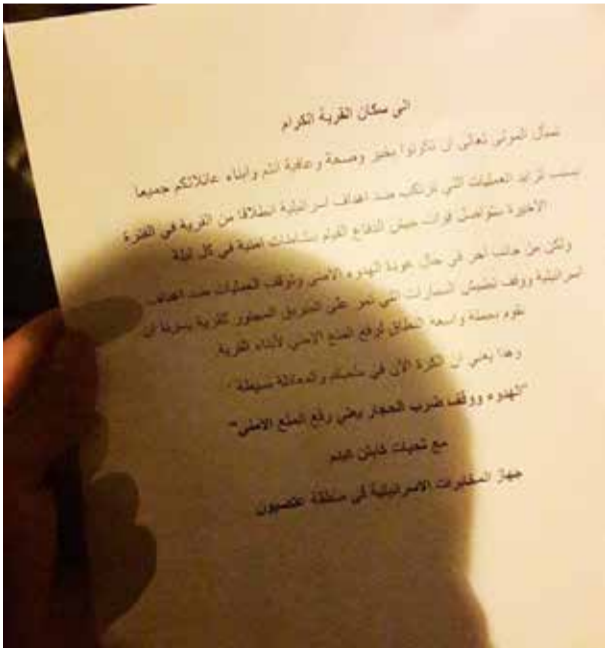 الى سكان القرية الكرام
نسأل المولى تعالى ان تكونوا بخير وصحة وعافية انتم وأبناء عائلاتكم جميعا
بسبب تزايد العمليات التي ترتكب ضد اهداف اسرائيلية انطلاقا من القرية في الفترة
الأخيرة ستواصل قوات جيش الدفاع القيام بنشاطات امنية في كل ليلة
ولكن من جانب آخر في حال عودة الهدوء الأمني وتوقف العمليات ضد اهداف
اسرائيلية ووقف السيارات التي تمر على الطريق المجاور للقرية يسرنا ان
نقوم بحملة واسعة النطاق لرفع المنع الامني لأبناء القرية.
وهذا يعني ان الكرة الآن في ملعبكم والمعادلة بسيطة
"الهدوء ووقف ضرب الحجار يعني رفع المنع الامني"
مع تحيات كابتن
جهاز المخابرات الاسرائيلية في منطقة عتصيون